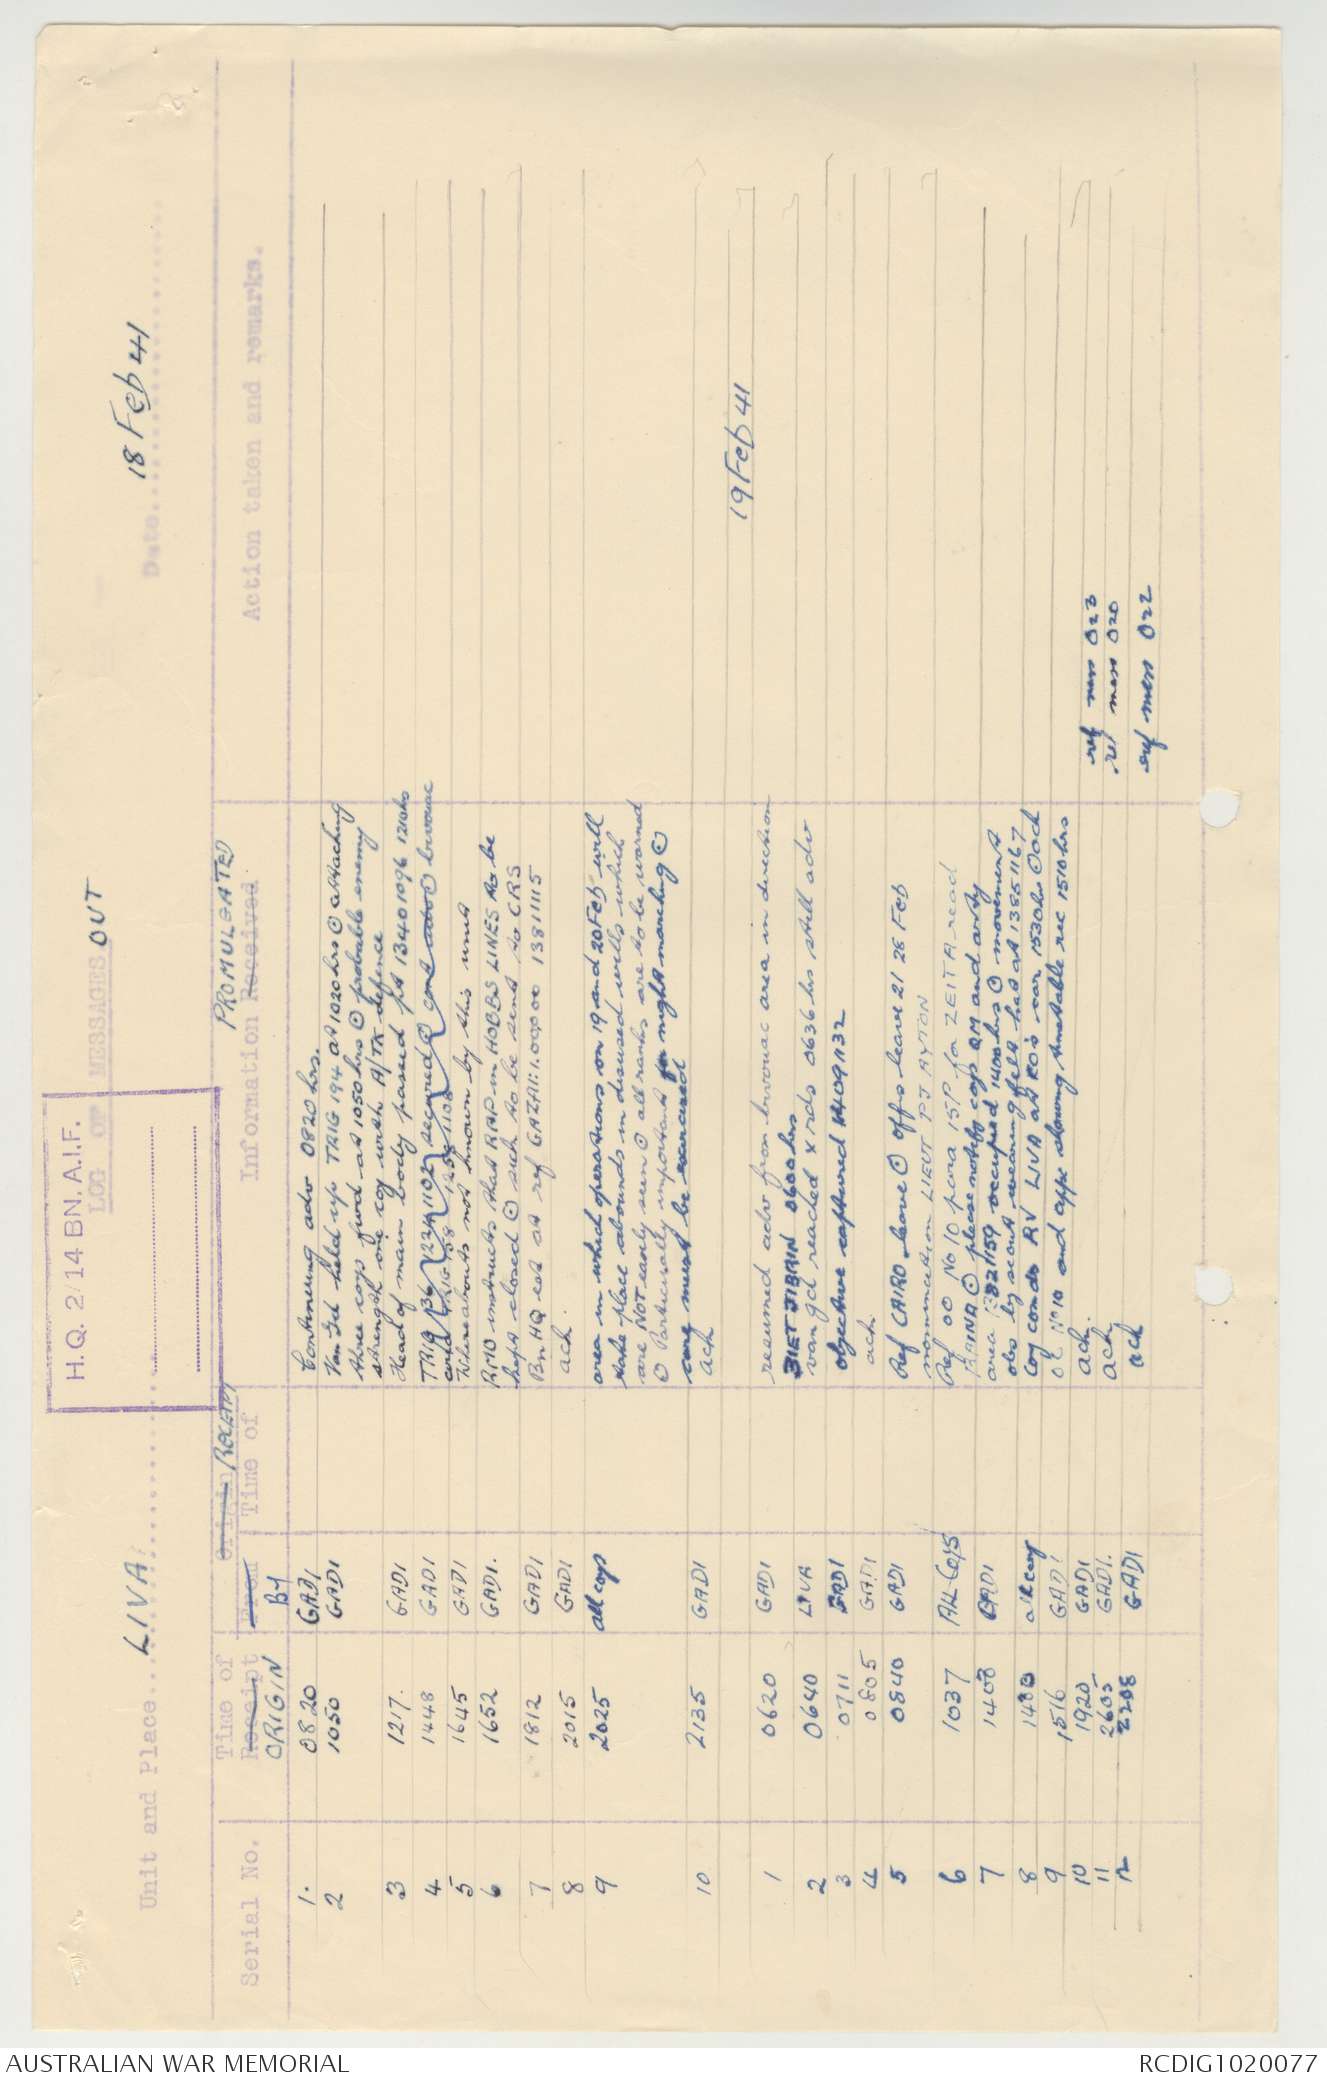 H.Q. 2/14 BN. A.I.F.
LOG OF MESSAGES OUT
Unit and Place... LIVA
Date... 18 Feb 41
Serial No.
Time of Receipt ORIGIN
From BY
Origin
Time of
PROMULGATED
Information Received
Action taken and remarks.
1. 0820 GADI Continuing adv 0820 hrs.
2 1050 GADI Van Gd held up TRIG 194 at 1020 hrs attaching
three coys fwd at 1050 hrs probable enemy
strength one coy with A/TK defence
3 1217. GADI Head of main body passed pt 13401096 1210 hrs
4 1448 GADI TRIG 1102 secured adv bivouac
5 1645 GADI Whereabouts not known by this unit
6 1652 GADI. RMO instructs that RAP in HOBBS LINES to be
kept closed sick to be sent to CRS
7 1812 GADI Bn HQ est at ref GAZA 1:1.00000 13811115
8 2015 GADI ack.
9 2025 all coys area in which operations on 19 and 20 Feb will
take place abounds in disused wells which
are NOT easily seen all ranks are to be warned
Particularly important for night marching
care must be exercised
10 2135 GADI ack
19 Feb 41
1 0620 GADI resumed adv from bivouac area in direction
BIET JIBRIN 0600 hrs
2 0640 LIVA van gd reached X rds 0636 hrs still adv
3 0711 GADI objective captured 14091132
4 0805 GADI ack.
5 0840 GADI Ref CAIRO leave offrs leave 21 26 Feb
nomination LIEUT PJ AYTON
6 1037 ALL COYS Ref OO No 10 para 15P for ZEITA read
7 GADI please notify coys QM and arty
area occupied 1400 hrs movement
8 all coy Coy comds RV LIVA at RO's car 1530 hrs ack
9 1516 GADI OC No 10 and appx showing timetable rec 1510 hrs
10 1920 GADI ack. ref mess 023
11 GADI. ack. ref mess 020
12 2208 GADI ack ref mess 022
AUSTRALIAN WAR MEMORIAL
RCDIG1020077